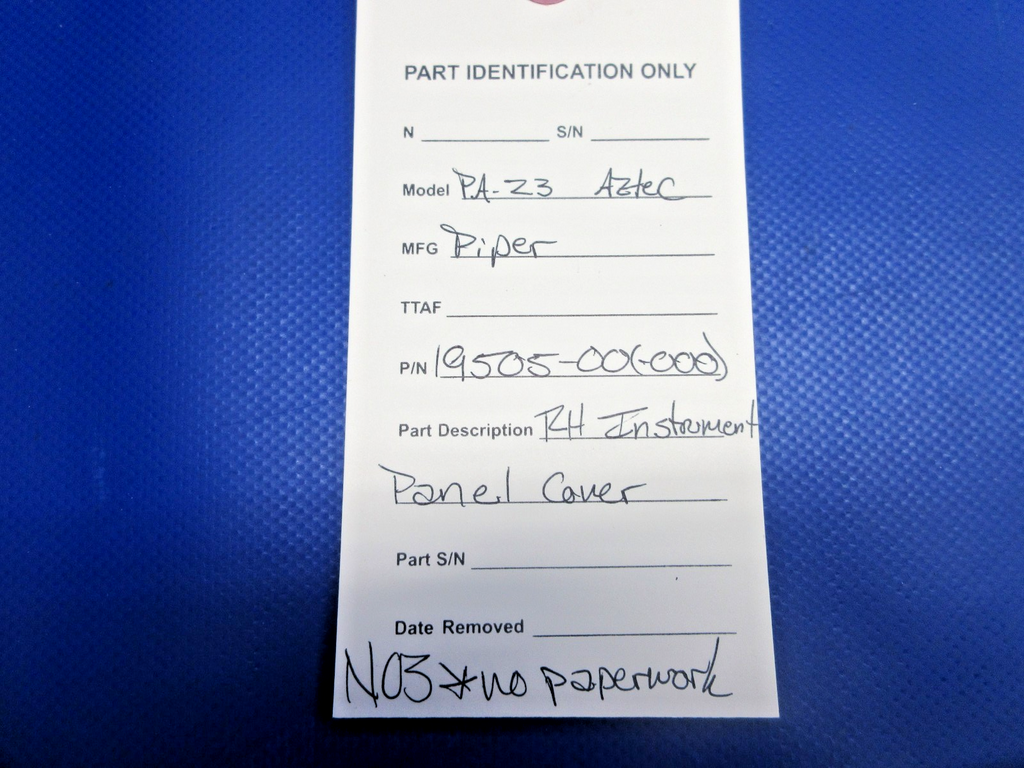 PART IDENTIFICATION ONLY
N S/N
Model PA-23 Aztec
MFG Piper
TTAF
P/N 19505-00(-000)
Part Description RH Instrument
Panel Cover
Part S/N
Date Removed
NO3 *no paperwork